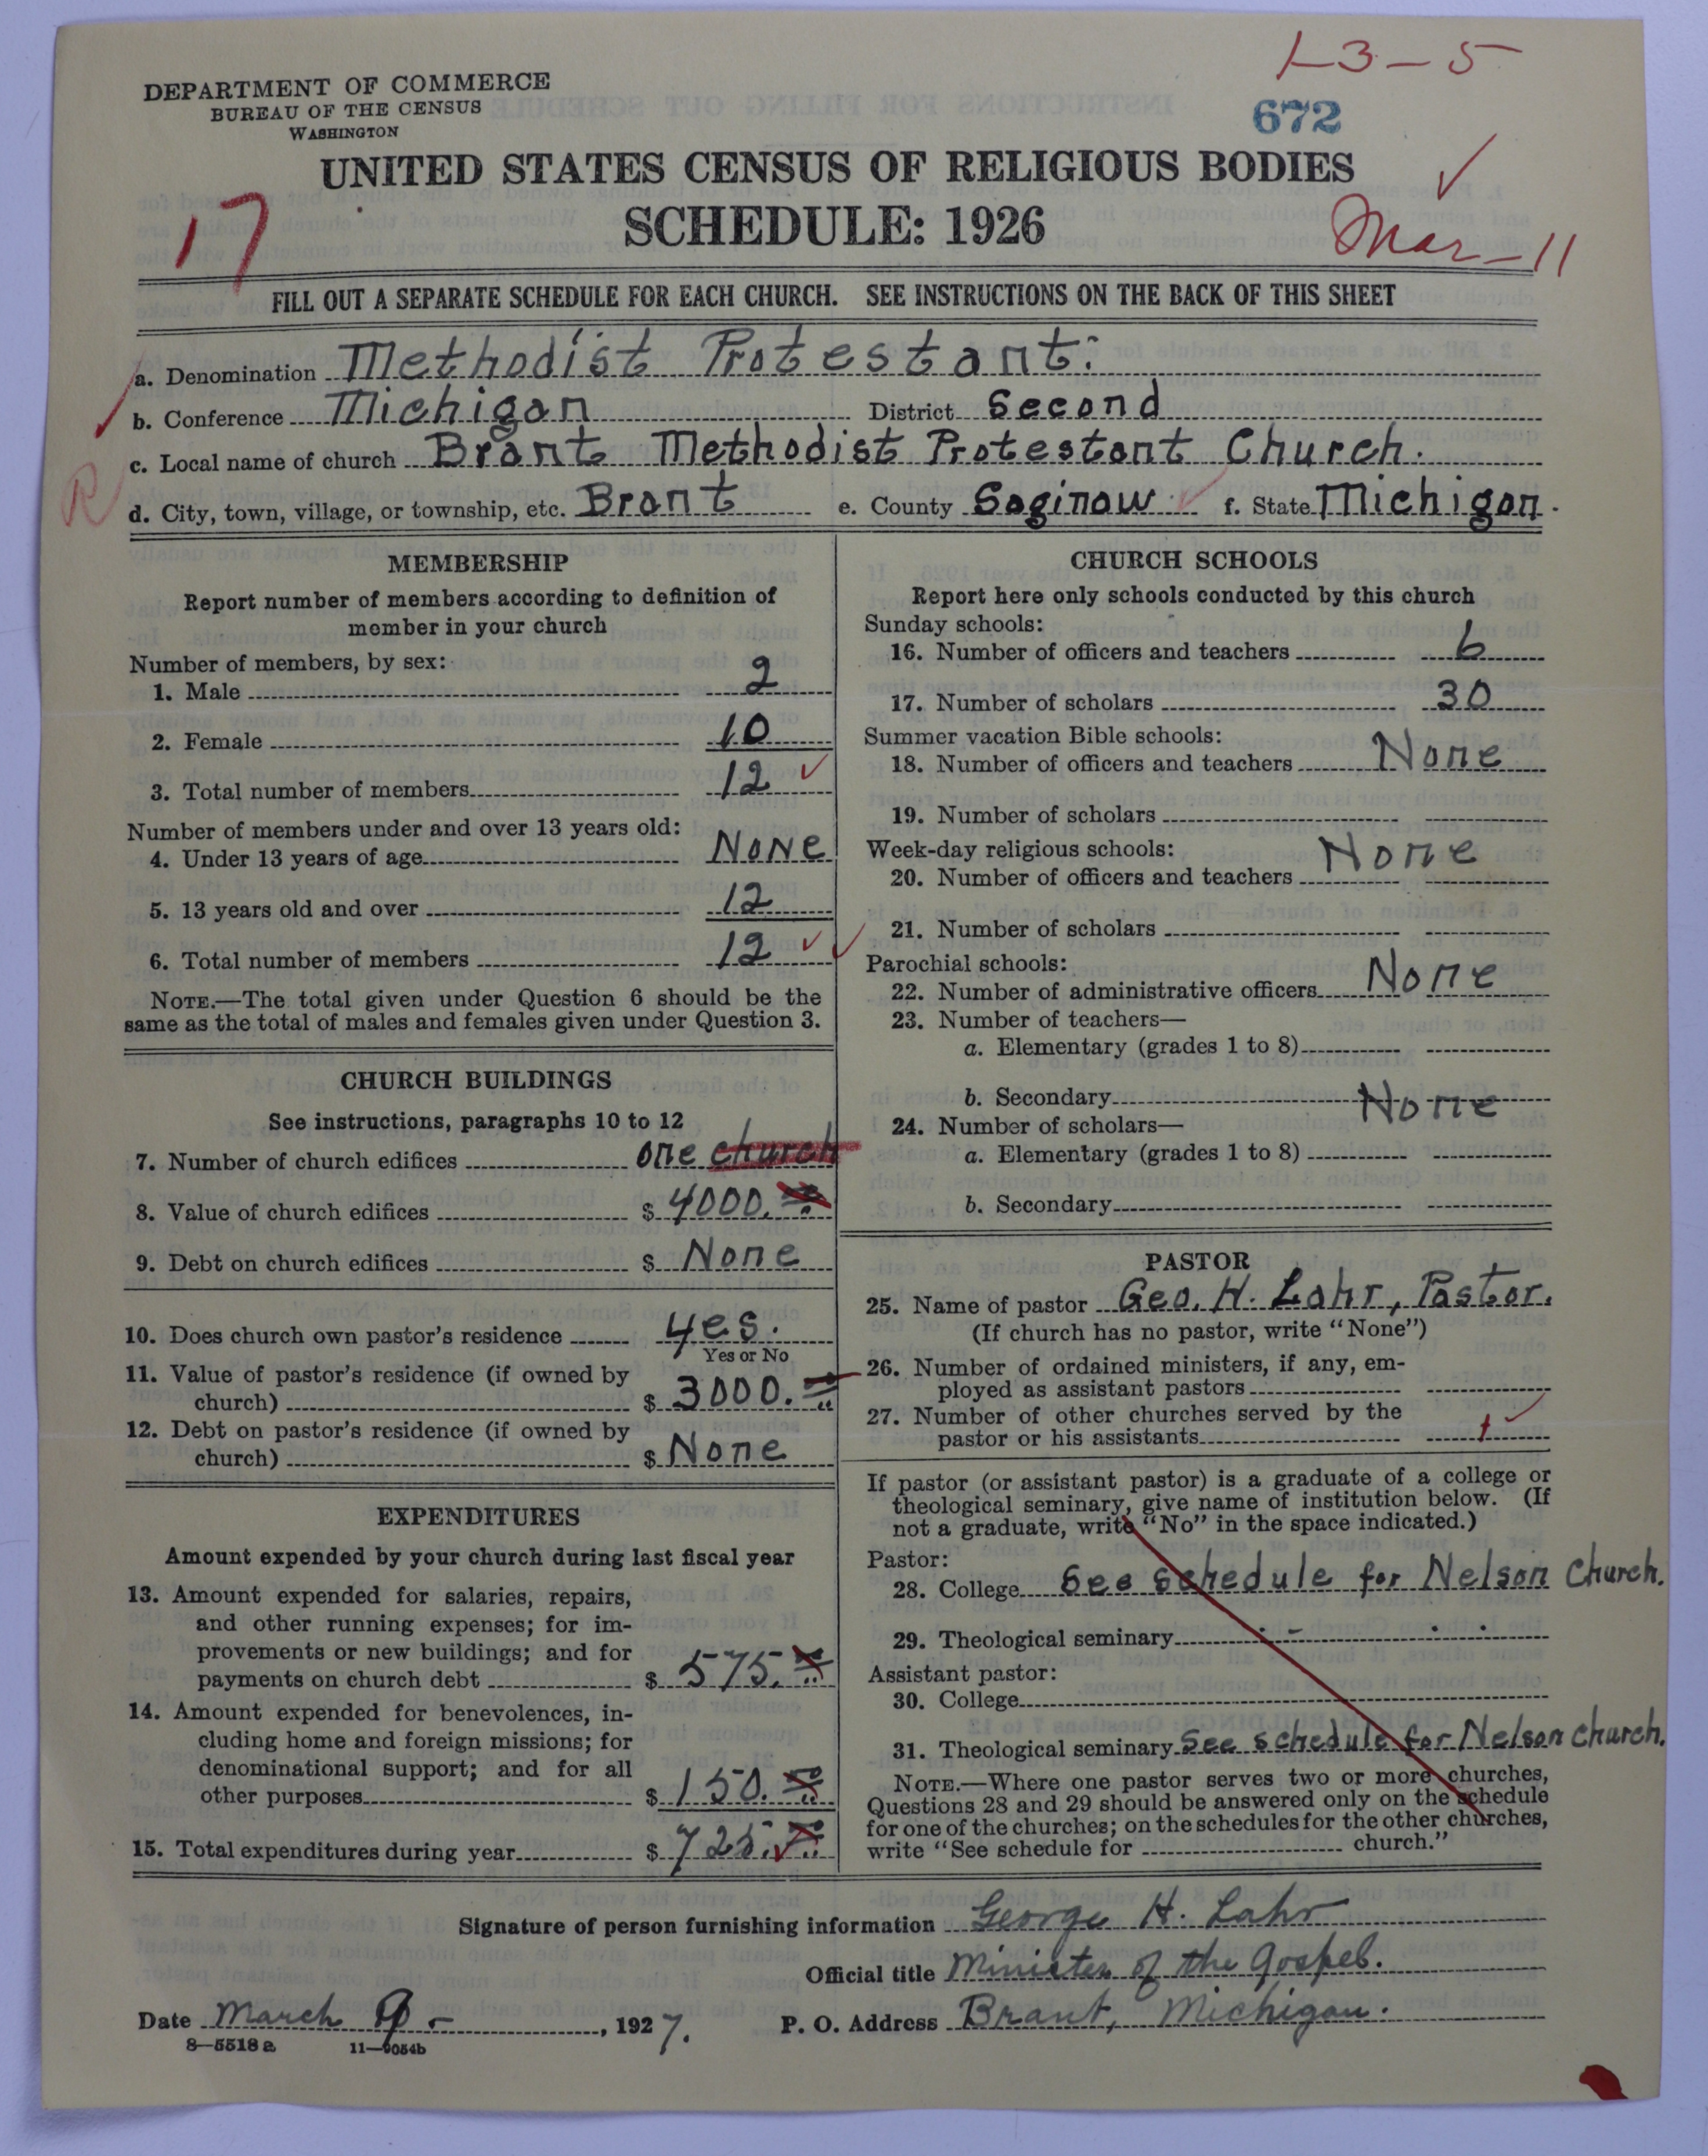 1-3-5
DEPARTMENT OF COMMERCE
BUREAU OF THE CENSUS
WASHINGTON
672
UNITED STATES CENSUS OF RELIGIOUS BODIES
17
SCHEDULE: 1926
Mar-11
FILL OUT A SEPARATE SCHEDULE FOR EACH CHURCH. SEE INSTRUCTIONS ON THE BACK OF THIS SHEET
a. Denomination Methodist Protestant.
b. Conference Michigan District Second
c. Local name of church Brant Methodist Protestant Church.
R
d. City, town, village, or township, etc. Brant e. County Saginaw f. State Michigan.
MEMBERSHIP
Report number of members according to definition of
member in your church
Number of members, by sex:
1. Male 2
2. Female 10
3. Total number of members 12
Number of members under and over 13 years old:
4. Under 13 years of age None
5. 13 years old and over 12
6. Total number of members 12
NOTE.—The total given under Question 6 should be the
same as the total of males and females given under Question 3.
CHURCH BUILDINGS
See instructions, paragraphs 10 to 12
7. Number of church edifices one church
8. Value of church edifices $ 4000.
9. Debt on church edifices $ None
10. Does church own pastor's residence yes.
Yes or No
11. Value of pastor's residence (if owned by
church) $ 3000.
12. Debt on pastor's residence (if owned by
church) $ None
EXPENDITURES
Amount expended by your church during last fiscal year
13. Amount expended for salaries, repairs,
and other running expenses; for im-
provements or new buildings; and for
payments on church debt $ 575.
14. Amount expended for benevolences, in-
cluding home and foreign missions; for
denominational support; and for all
other purposes $ 150.
15. Total expenditures during year $ 725.
CHURCH SCHOOLS
Report here only schools conducted by this church
Sunday schools:
16. Number of officers and teachers 6
17. Number of scholars 30
Summer vacation Bible schools:
18. Number of officers and teachers None
19. Number of scholars
Week-day religious schools:
20. Number of officers and teachers None
21. Number of scholars
Parochial schools:
22. Number of administrative officers None
23. Number of teachers—
a. Elementary (grades 1 to 8)
b. Secondary None
24. Number of scholars—
a. Elementary (grades 1 to 8)
b. Secondary
PASTOR
25. Name of pastor Geo. H. Lahr, Pastor.
(If church has no pastor, write "None")
26. Number of ordained ministers, if any, em-
ployed as assistant pastors
27. Number of other churches served by the
pastor or his assistants 1
If pastor (or assistant pastor) is a graduate of a college or
theological seminary, give name of institution below. (If
not a graduate, write "No" in the space indicated.)
Pastor:
28. College See schedule for Nelson Church.
29. Theological seminary
Assistant pastor:
30. College
31. Theological seminary See schedule for Nelson Church.
NOTE.—Where one pastor serves two or more churches,
Questions 28 and 29 should be answered only on the schedule
for one of the churches; on the schedules for the other churches,
write "See schedule for church."
Signature of person furnishing information George H. Lahr
Official title Minister of the Gospel.
Date March 9-, 1927. P. O. Address Brant, Michigan.
8—5518a 11—9054b